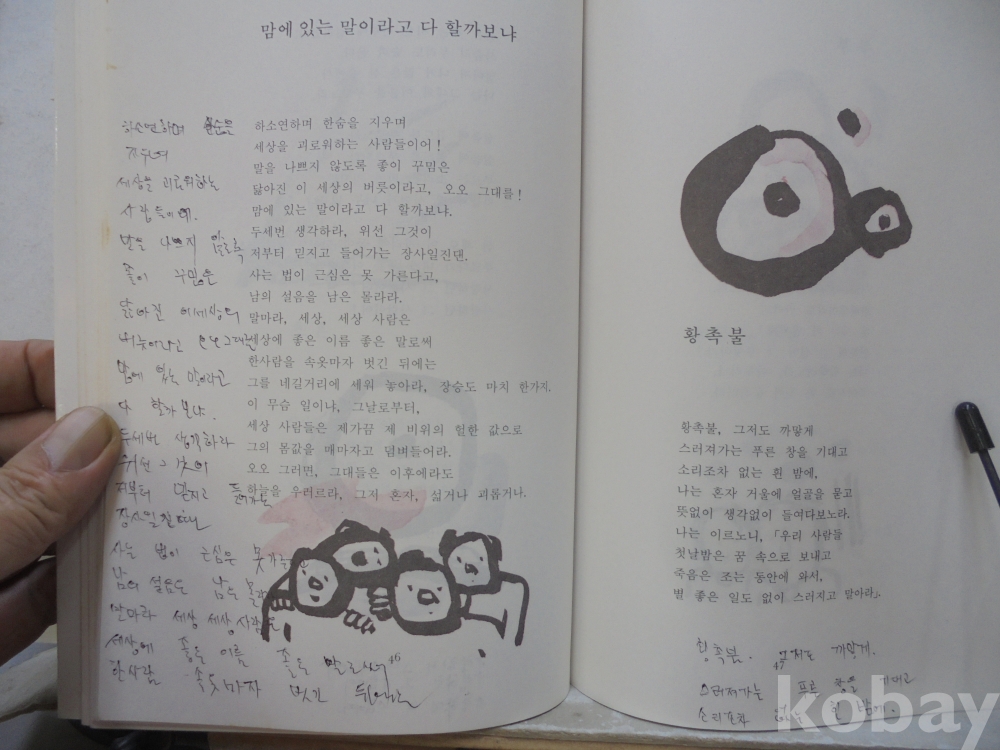 맘에 있는 말이라고 다 할까보냐
하소연하며 한숨을 지우며
세상을 괴로워하는 사람들이어!
말을 나쁘지 않도록 좋이 꾸밈은
닳아진 이 세상의 버릇이라고, 오오 그대를!
맘에 있는 말이라고 다 할까보냐.
두세번 생각하라, 위선 그것이
저부터 믿지고 들어가는 장사일진댄.
사는 법이 근심은 못 가른다고,
남의 설음을 남은 몰라라.
말마라, 세상, 세상 사람은
세상에 좋은 이름 좋은 말로써
한사람을 속옷마자 벗긴 뒤에는
그를 네길거리에 세워 놓아라, 장승도 마치 한가지.
이 무슴 일이냐, 그날로부터,
세상 사람들은 제가끔 제 비위의 헐한 값으로
그의 몸값을 매마자고 덤벼들어라.
오오 그러면, 그대들은 이후에라도
하늘을 우러르라, 그저 혼자, 섧거나 괴롭거나.
하소연하며
세상을 괴로워하는
사람들이어.
말을 나쁘지 않도록
좋이 꾸밈은
닳아진 이세상의
버릇이라고 오오 그대를
맘에 있는 말이라고
다 할까보냐.
두세번 생각하라
위선 그것이
저부터 믿지고 들어가는
장사일진댄
사는 법이 근심은 못가른
남의 설음을 남은 몰라
말마라 세상 세상 사람은
세상에 좋은 이름 좋은 말로써
한사람 속옷마자 벗긴 뒤에는
46
황촉불
황촉불, 그저도 까맣게
스러져가는 푸른 창을 기대고
소리조차 없는 흰 밤에,
나는 혼자 거울에 얼골을 묻고
뜻없이 생각없이 들여다보노라.
나는 이르노니, 「우리 사람들
첫날밤은 꿈 속으로 보내고
죽음은 조는 동안에 와서,
별 좋은 일도 없이 스러지고 말아라」.
황촉불. 그저도 까맣게.
47
스러져가는 푸른 창을 기대고
소리조차 없는 흰 밤에.
kobay